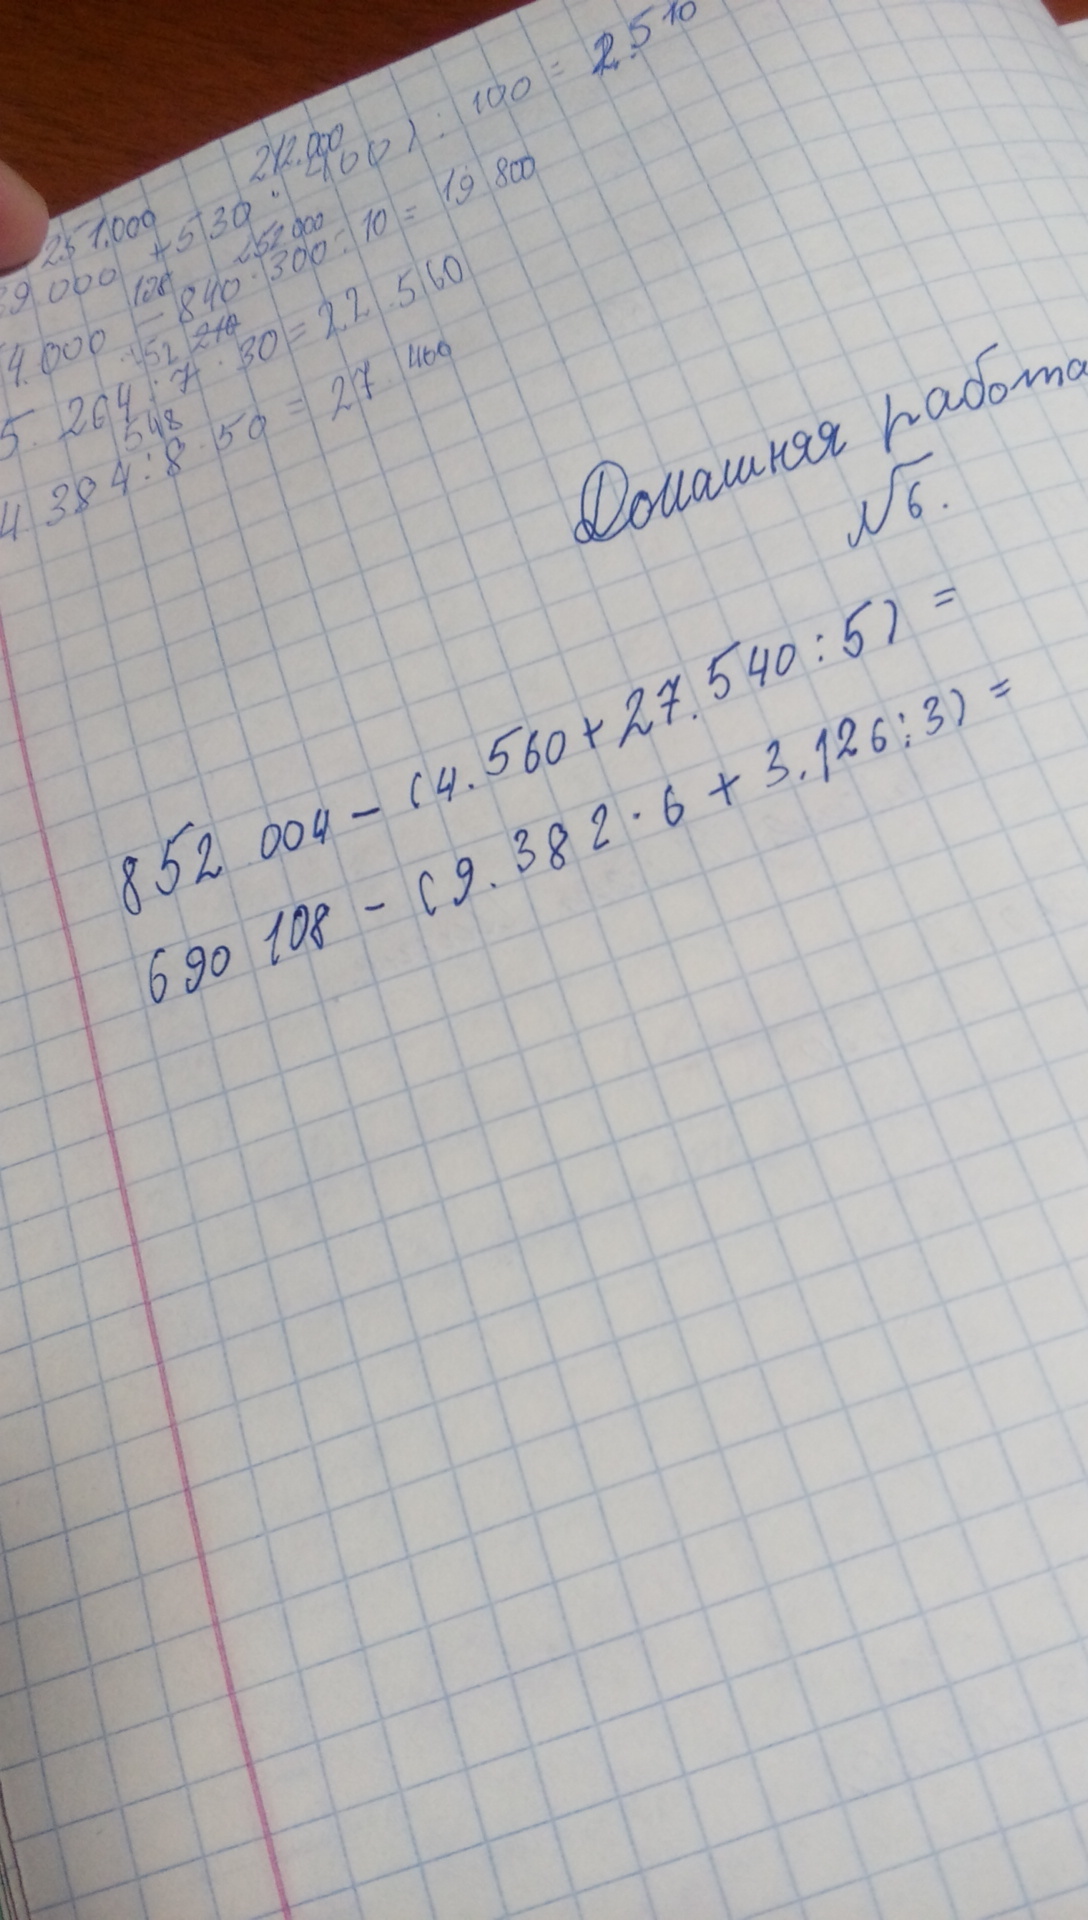 251.000 212.000
39 000 + 530 · 400) : 100 = 2.510
252 000
4.000 – 840 · 300 : 10 = 19 800
752 210
5. 264 : 7 · 30 = 22.560
548
4. 384 : 8 · 50 = 27.400
Домашняя работа
№6.
852 004 – (4.560 + 27.540 : 5) =
690 108 – (9.382 · 6 + 3.126 : 3) =